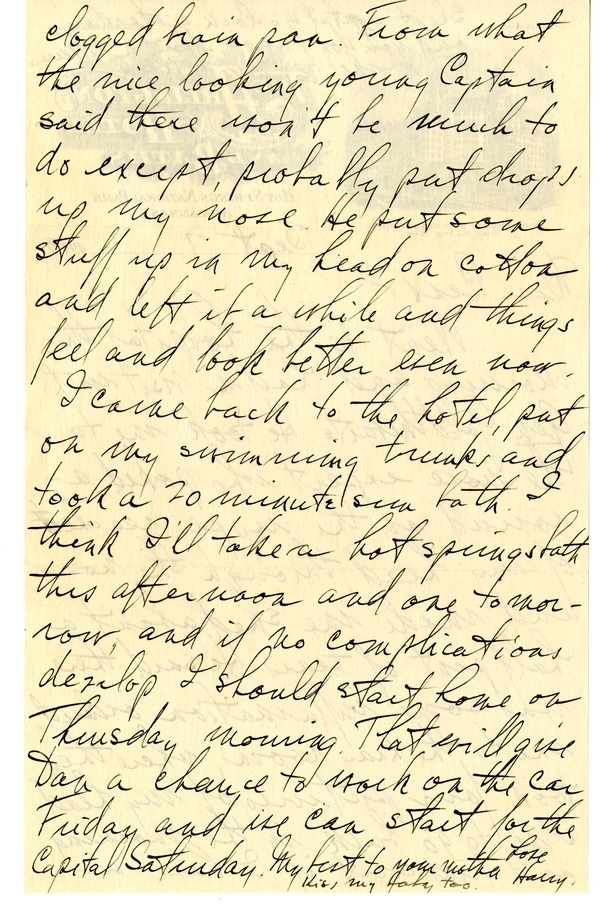 clogged brain pan. From what
the nice looking young Captain
said there won't be much to
do except, probably put drops
up my nose. He put some
stuff up in my head on cotton
and left it a while and things
feel and look better even now.
I came back to the hotel, put
on my swimming trunks and
took a 20 minute sun bath. I
think I'll take a hot springs bath
this afternoon and one tomor-
row, and if no complications
develop I should start home on
Thursday morning. That will give
Dan a chance to work on the car
Friday and we can start for the
Capital Saturday. My best to your mother Love
Kiss my baby too. Harry.